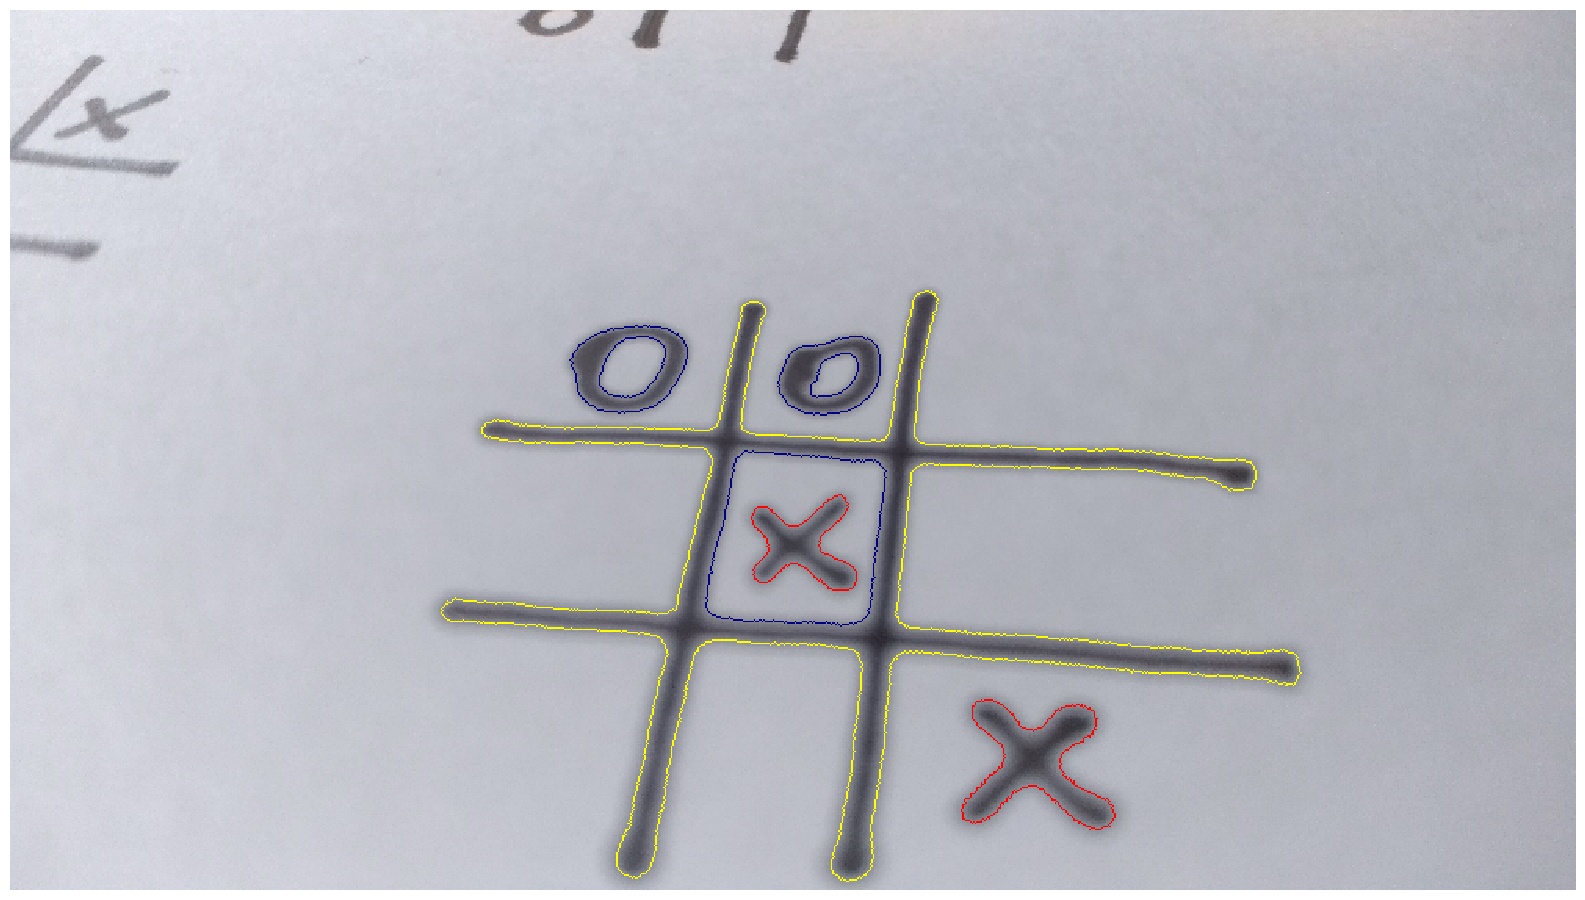 x
O O
X
X